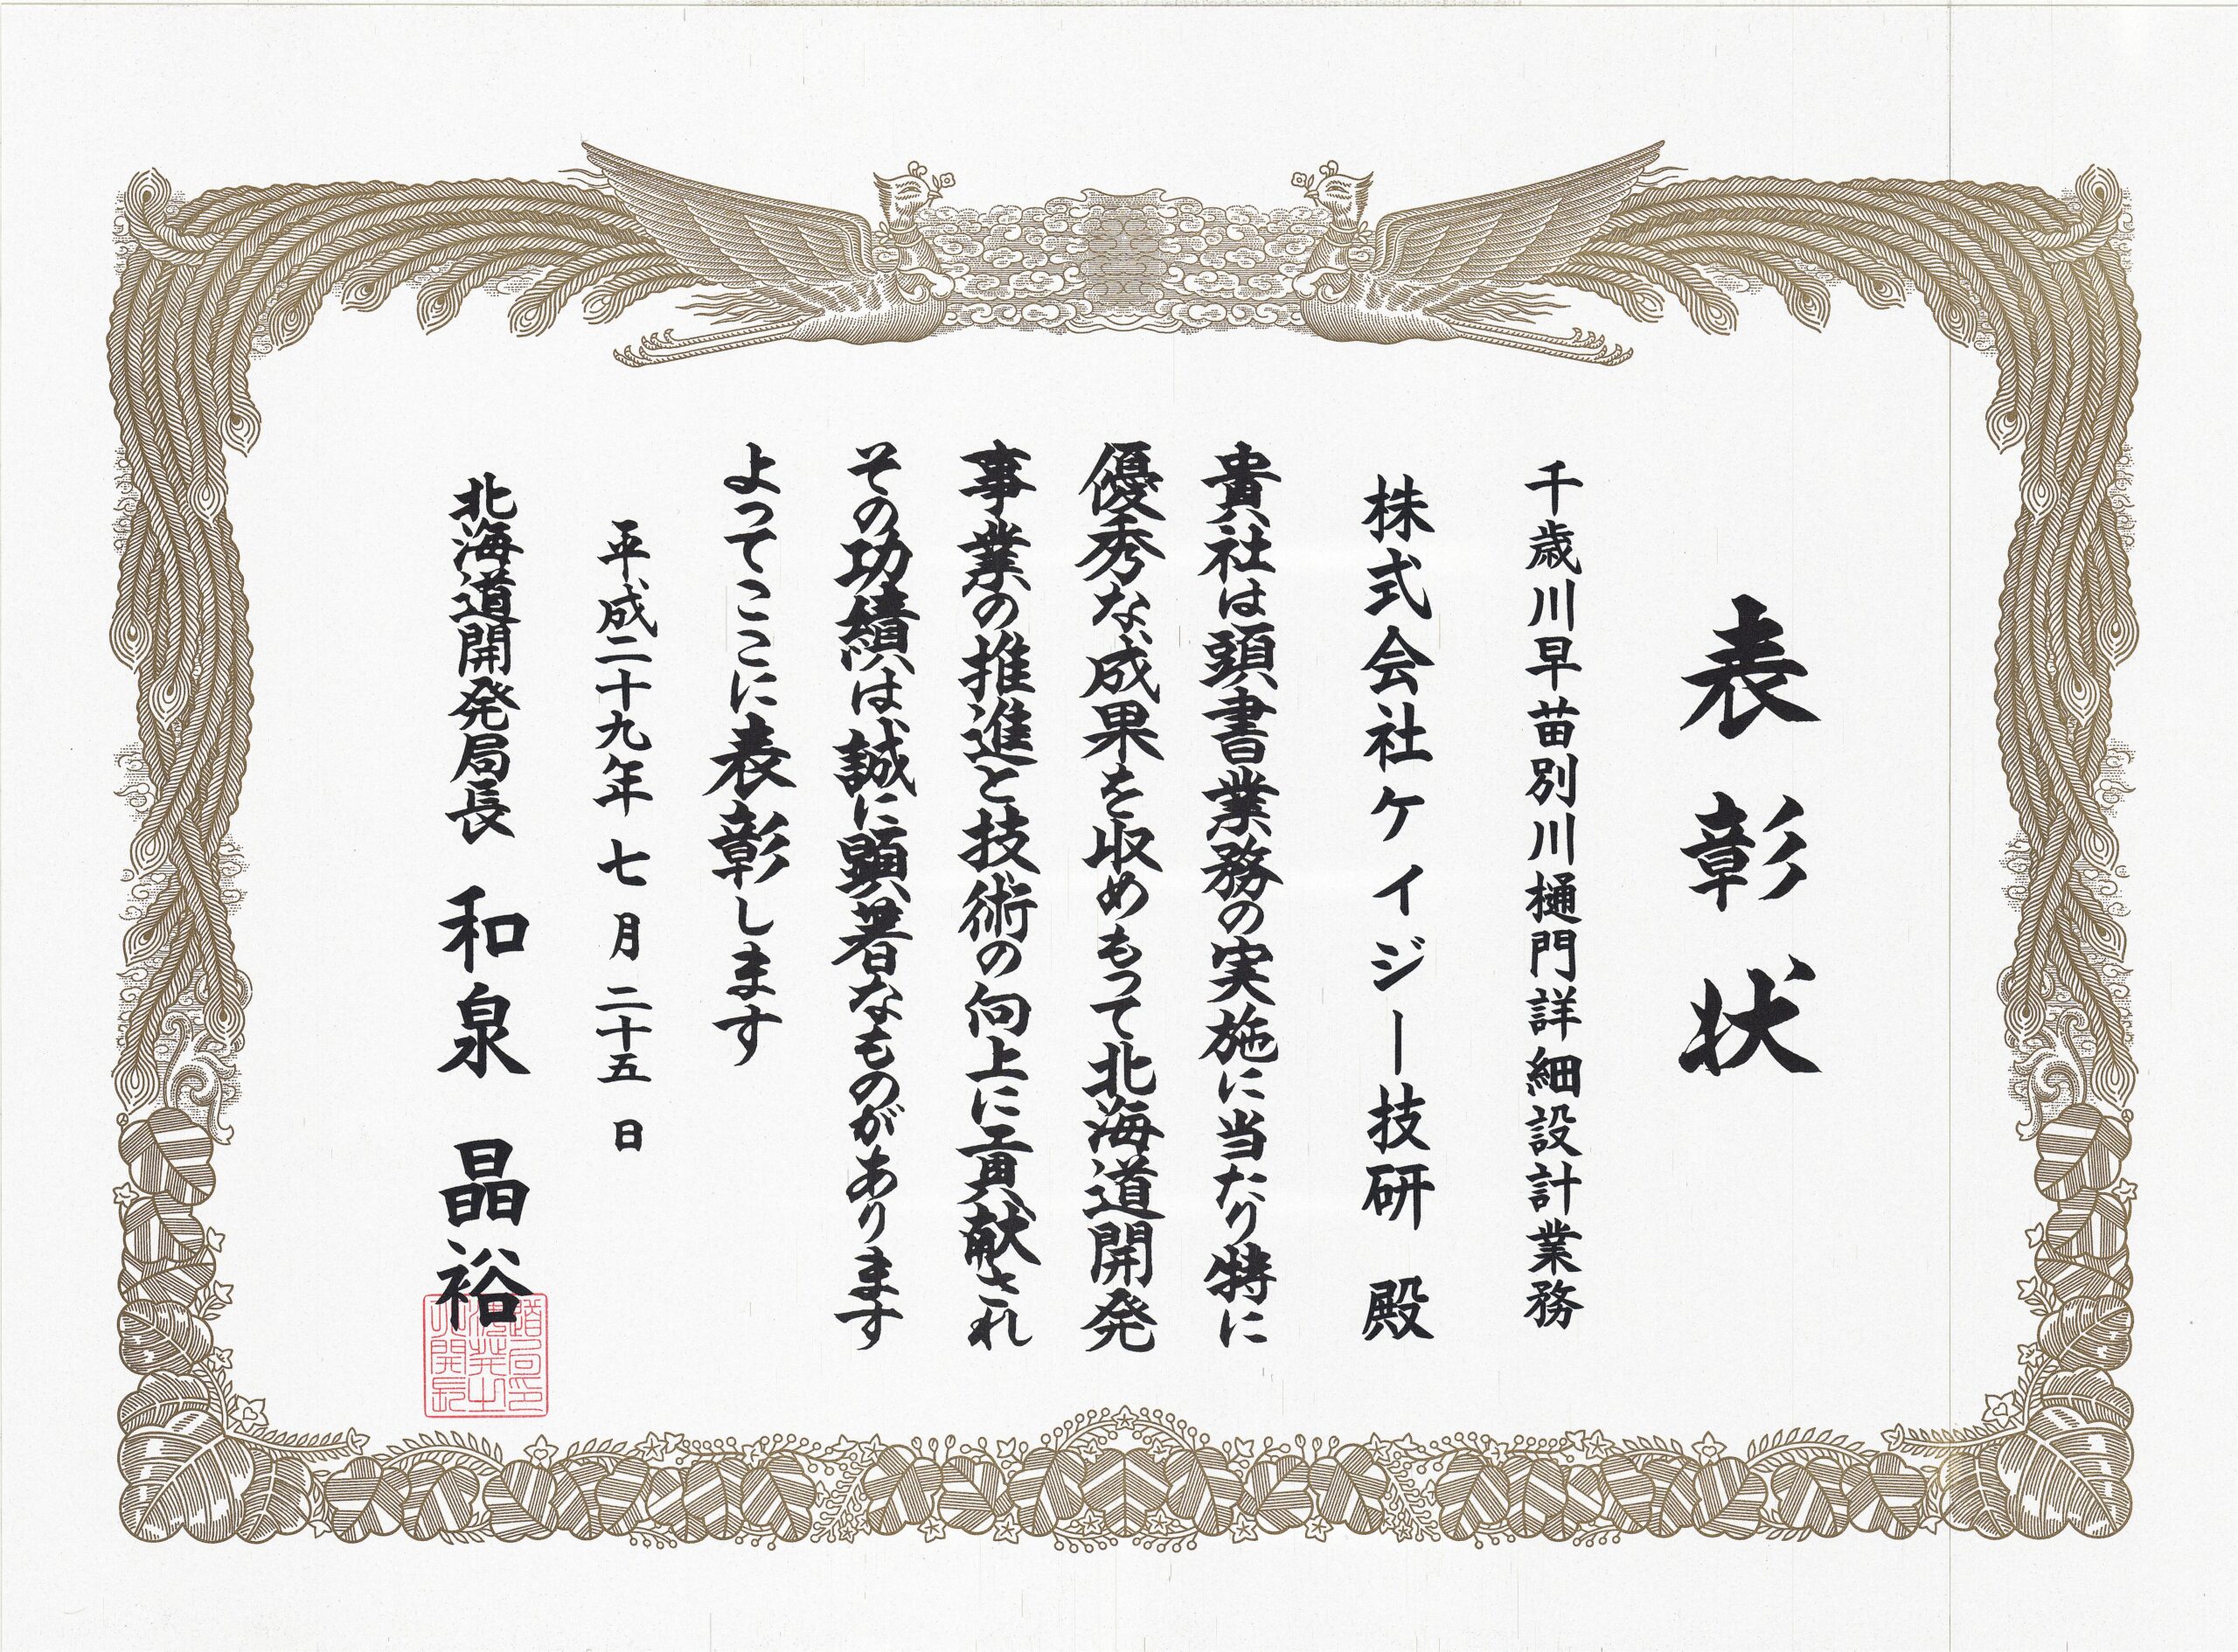 表彰状
千歳川早苗別川樋門詳細設計業務
株式会社ケイジー技研 殿
貴社は頭書業務の実施に当たり特に
優秀な成果を収めもって北海道開発
事業の推進と技術の向上に貢献され
その功績は誠に顕著なものがあります
よってここに表彰します
平成二十九年 七月 二十五日
北海道開発局長 和泉 晶裕